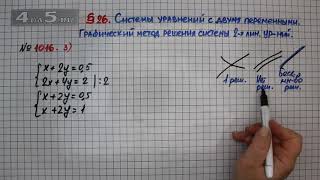 4 на 5.ru
§26. Системы уравнений с двумя переменными.
Графический метод решения системы 2-х лин. ур-ний.
№ 1016. 3)
x + 2y = 0,5
2x + 4y = 2 | :2
x + 2y = 0,5
x + 2y = 1
1 реш.
реш.
реш.